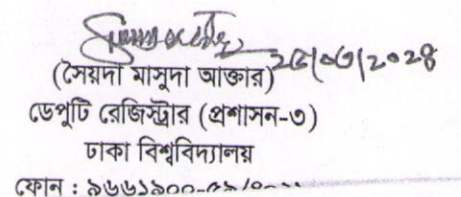 (সৈয়দা মাসুদা আক্তার)
ডেপুটি রেজিস্ট্রার (প্রশাসন-৩)
ঢাকা বিশ্ববিদ্যালয়
ফোন : ৯৬৬১৯০০-৫৯/